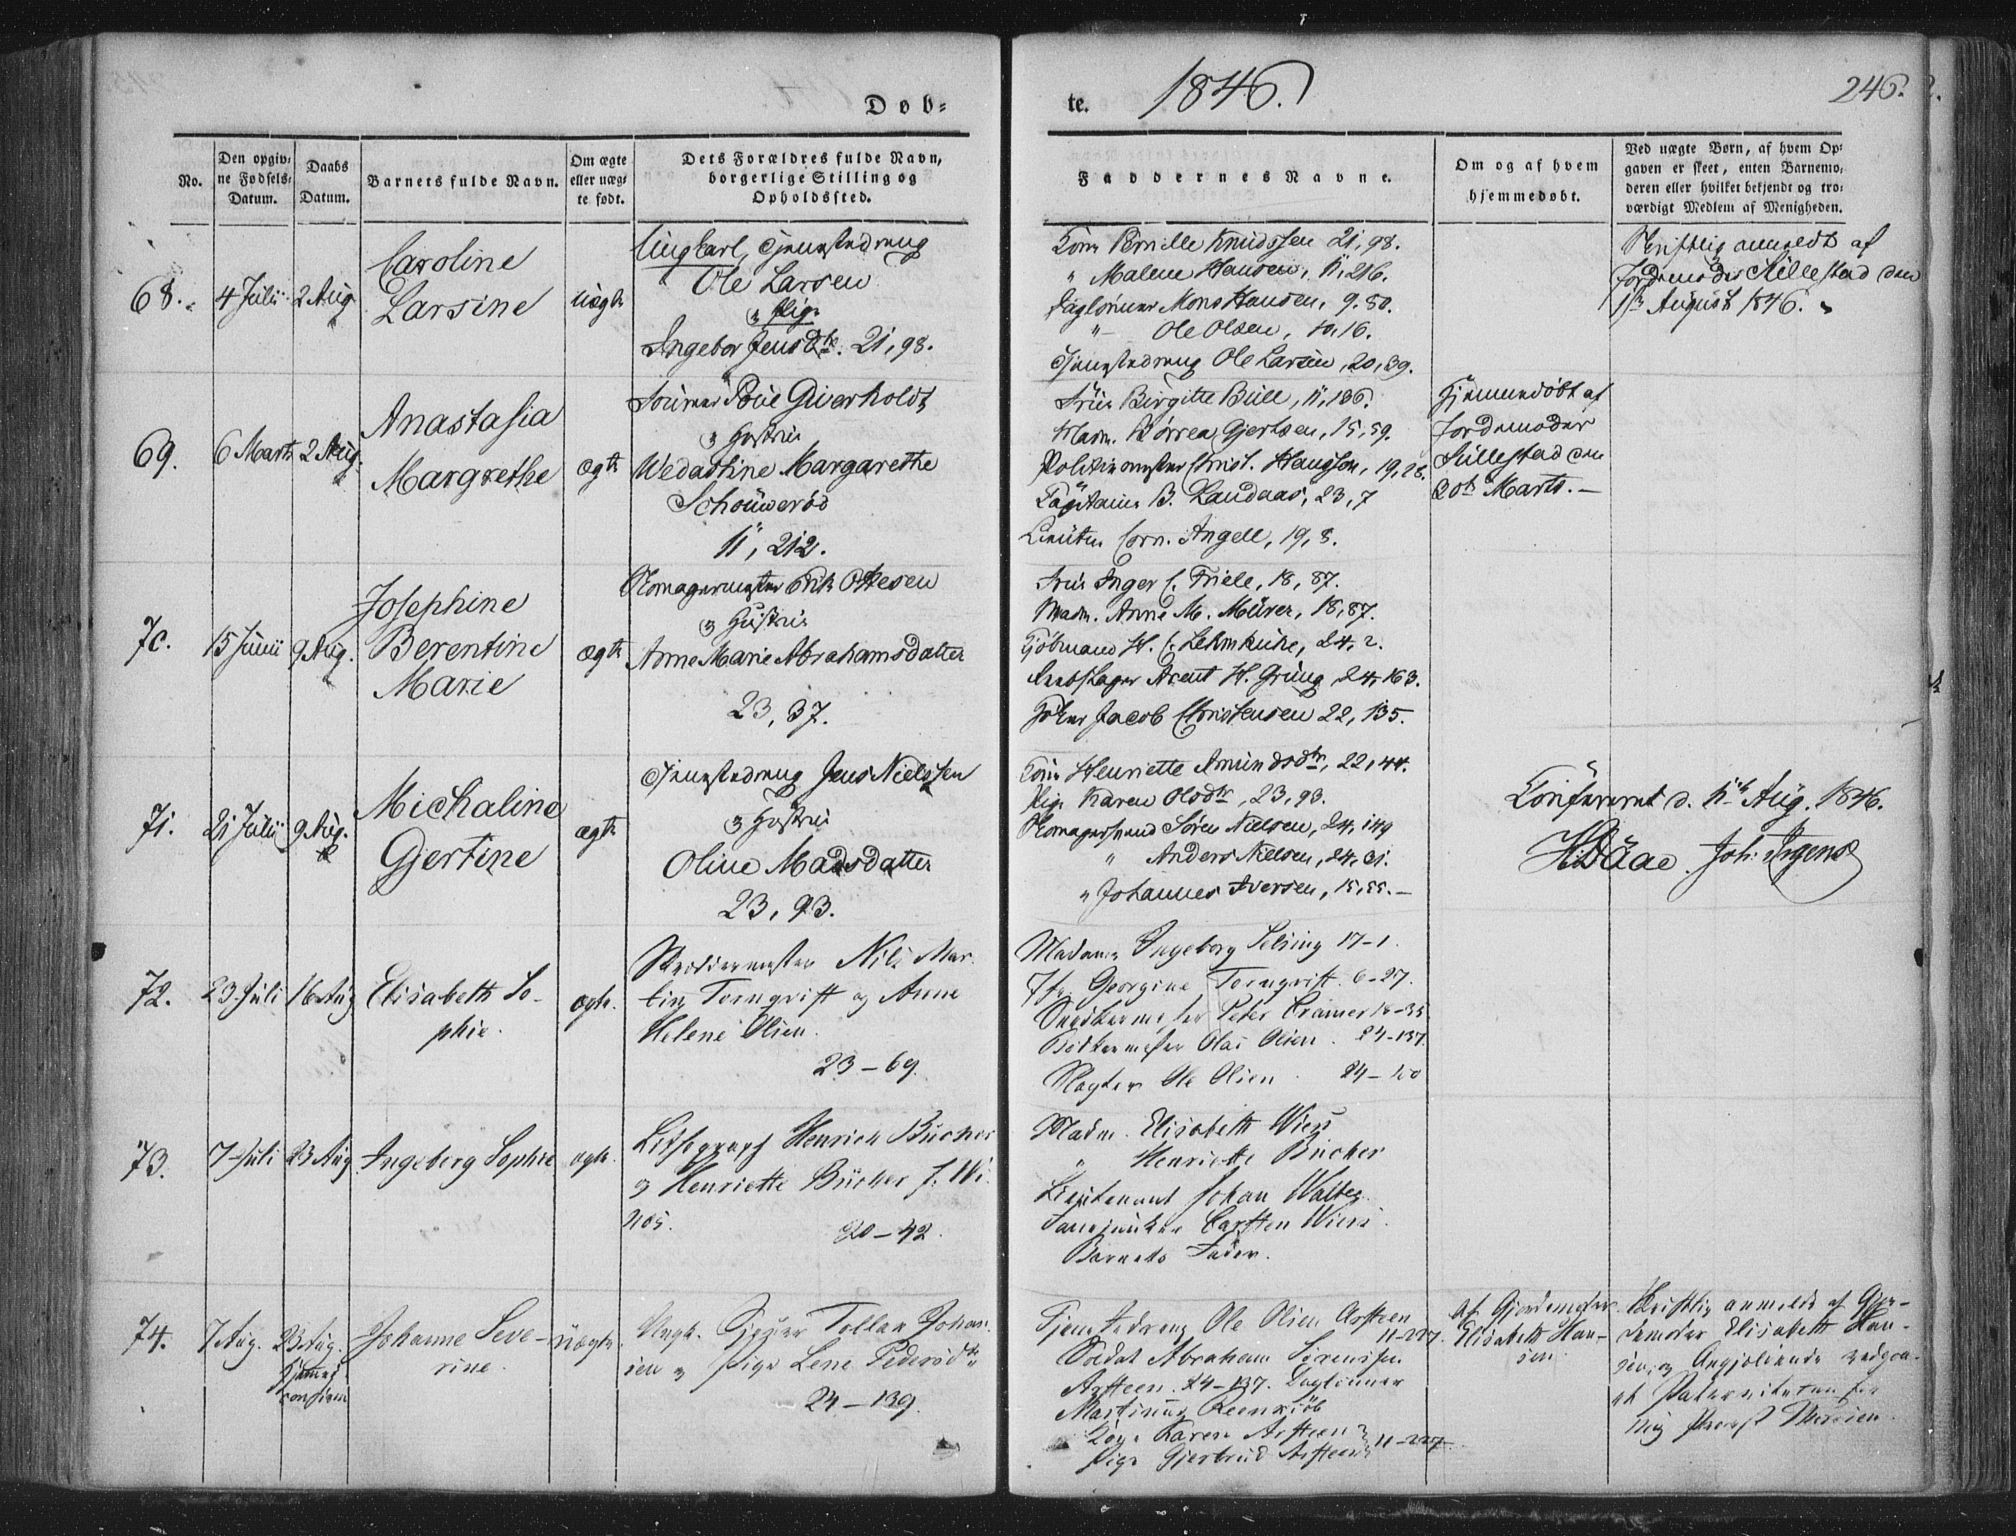 Døb-
te.
1846.
246.
No.
Den opgiv-
ne Fødsels-
Datum.
Daabs
Datum.
Barnets fulde Navn.
Om ægte
eller uæg-
te født.
Dets Forældres fulde Navn,
borgerlige Stilling og
Opholdssted.
Faddernes Navne.
Om og af hvem
hjemmedøbt.
Ved uægte Børn, af hvem Op-
gaven er skeet, enten Barnemo-
deren eller hvilket bekjendt og tro-
værdigt Medlem af Menigheden.
68.
4 Julii
2 Aug
Caroline
Larsine
uægte
Ungkarl, Tjenestedreng
Ole Larsen
& Pige
Ingebor Jensdtr. 21, 98.
Kone Brville Knudssen 21, 98.
" Malene Hansen, 11, 216.
Daglønner Mons Hansen, 9. 80.
" Ole Olsen, 10, 16.
Tjenestedreng Ole Larsen, 20, 39.
Skriftlig anmeldt af
Jordemoder Sillestad den
1ste August 1846.
69.
6 Marts
2 Aug.
Anastasia
Margrethe
ægte
Poul Gierholdt
& Hustru
Wedastine Margarethe
Schouwerød
11, 212.
Frue Birgitte Bull, 11, 186.
Madm. Børrea Gjertsen, 15, 59.
Politiemester Christ. Hansson, 19, 28.
Capitaine B. Landaas, 23, 7
Lieuten. Corn. Angell, 19, 8.
Hjemmedøbt af
Jordemoder
Sillestad den
20de Marts. —
70.
15 Junii
9 Aug.
Josephine
Berentine
Marie
ægte
Skomagermester Erik Ottesen
& Hustru
Anne Marie Abrahamsdatter
23, 37.
Frue Inger C. Friele, 18, 87.
Madm. Anne M. Mürer, 18, 87.
Kjøbmand H. C. Lehmkuhl, 24, 2.
Rebslager Arent H. Grüng, 24, 163.
Jacob Christensen 22, 135.
71.
21 Julii
9 Aug.
Michaline
Gjertine
ægte
Tjenestedreng Jens Nielssen
& Hustru
Oline Madsdatter
23, 93.
Kone Henriette Amundsdtr, 22, 44.
Pige Karen Olsdtr, 23, 93.
Skomagersvend Søren Nielsen, 24, 149
" Anders Nielsen, 24, 31.
" Johannes Iversen, 15, 55. —
Confereret d. 11te Aug. 1846.
H. Daae. Joh. Irgens
72.
23 Juli
16 Aug
Elisabeth So-
phie.
ægte.
Skrædermester Nils Mar-
tin Tornqvist og Anne
Helene Olsen.
23 — 69.
Madame Ingeborg Selsing 17-1.
Jfr. Georgine Tornqvist. 6-27.
Snedkermester Peter Cramer 18-35
Bødkermester Olai Olsen. 24-137
Slagter Ole Olsen. 24-
73.
7 Juli
23 Aug
Ingeborg Sophie
ægte.
Lithograph Henrich Bücher
og Henriette Bücher f. Wi-
nös.
20 — 42.
Madm. Elisabeth Wiese
" Henriette Bücher
Lieutenant Johan Walter
Fanejunker Carsten Wiese
Barnets Fader.
74.
7 Aug.
23 Aug.
Hjemme
Johanne Seve-
rine.
Uægte
Ungk. Tollak Johan-
sen og Pige Lene Pedersdtr
24 — 139.
Tjenestedreng Ole Olsen Arsteen
11-227.
Soldat Abraham Sørenssen
Arsteen. 24-137. Daglønner
Martinus
Kone Karen Arsteen
Pige Gjertrud Arsteen 11-227
af Gjordemoder
Elisabeth Han-
sen.
Skriftlig anmeldt af Gjor-
demoder Elisabeth Han-
sen, og
at Paterniteten for
mig Provst